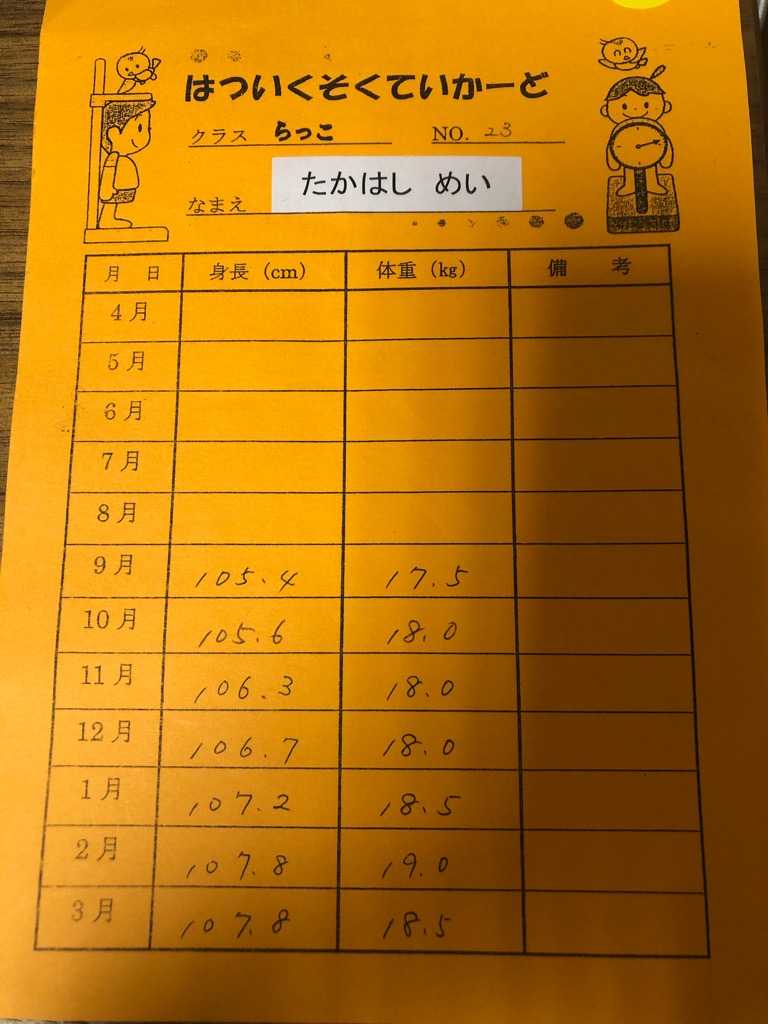 はついくそくていかーど
クラス らっこ NO. 23
なまえ たかはし めい
月 日 身長(cm) 体重(kg) 備 考
4月
5月
6月
7月
8月
9月 105.4 17.5
10月 105.6 18.0
11月 106.3 18.0
12月 106.7 18.0
1月 107.2 18.5
2月 107.8 19.0
3月 107.8 18.5